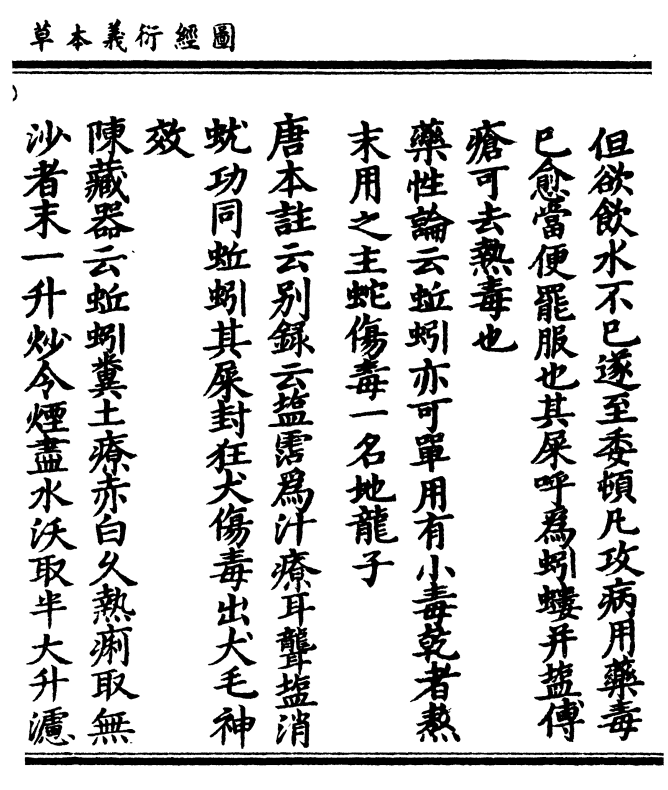 圖經衍義本草
但欲飲水不已遂至委頓凡攻病用藥毒
已愈當便罷服也其屎呼為蚓螻并塩傅
瘡可去熱毒也
藥性論云蚯蚓亦可單用有小毒乾者熬
末用之主蛇傷毒一名地龍子
唐本註云别録云塩霑為汁療耳聾塩消
蚘功同蚯蚓其屎封狂犬傷毒出犬毛神
效
陳藏器云蚯蚓糞土療赤白久熱痢取無
沙者末一升炒令煙盡水沃取半大升濾